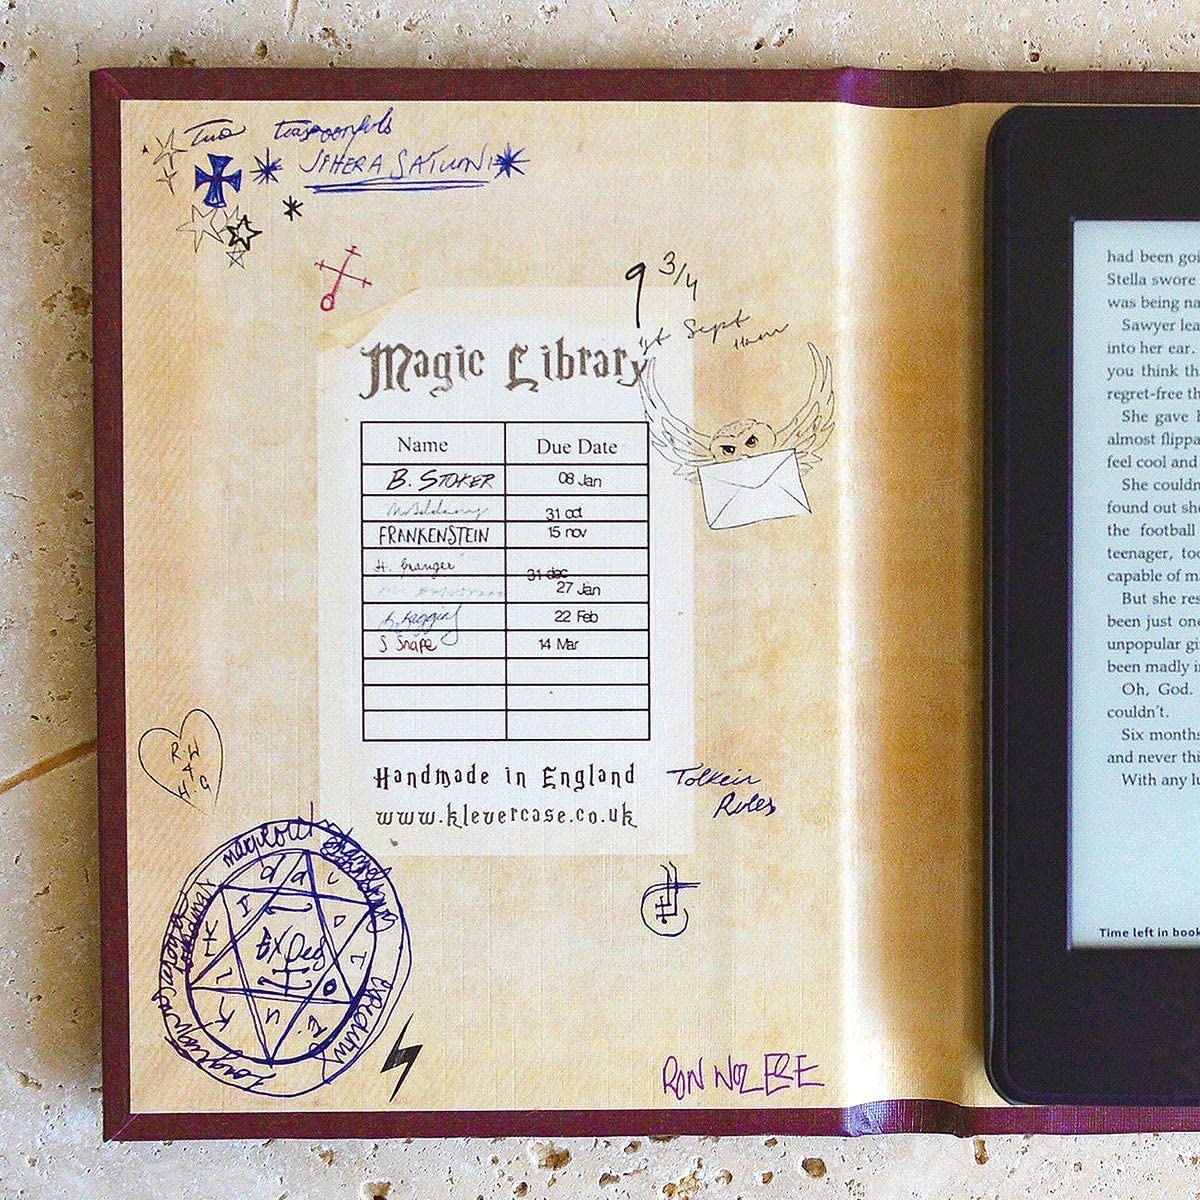 Two teaspoonfuls
9 3/4
1st Sept
11am
Magic Library
Name Due Date
B. STOKER 08 Jan
31 oct
FRANKENSTEIN 15 nov
H. Granger 31 dec
27 Jan
22 Feb
S Snape 14 Mar
Handmade in England
www.klevercase.co.uk
Tolkein
Rules
R W
+
H G
RON WOZ ERE
had been goi
Stella swore
was being na
Sawyer lea
into her ear.
you think th
regret-free th
She gave
almost flippa
feel cool and
She couldn
found out she
the football
teenager, too
capable of m
But she res
been just one
unpopular gi
been madly i
Oh, God.
couldn't.
Six months
and never thi
With any lu
Time left in book